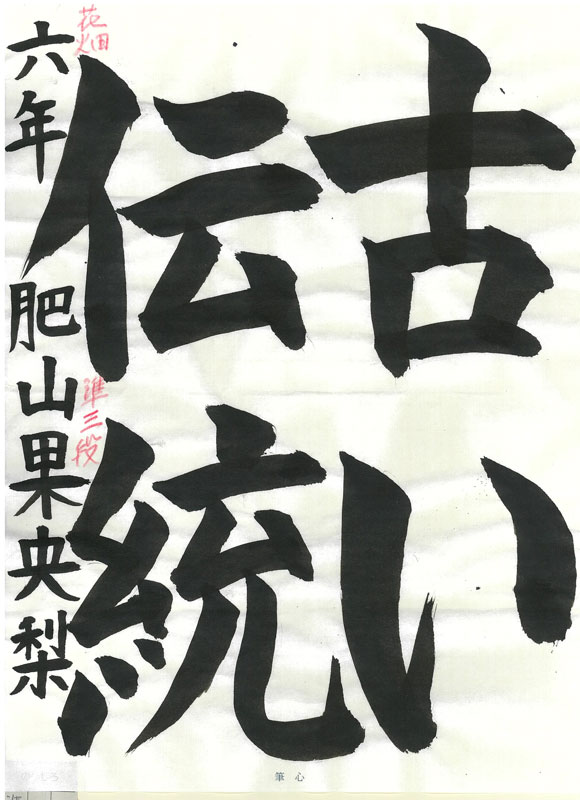 古い
伝統
六年 肥山果央梨
花畑
準三段
筆心